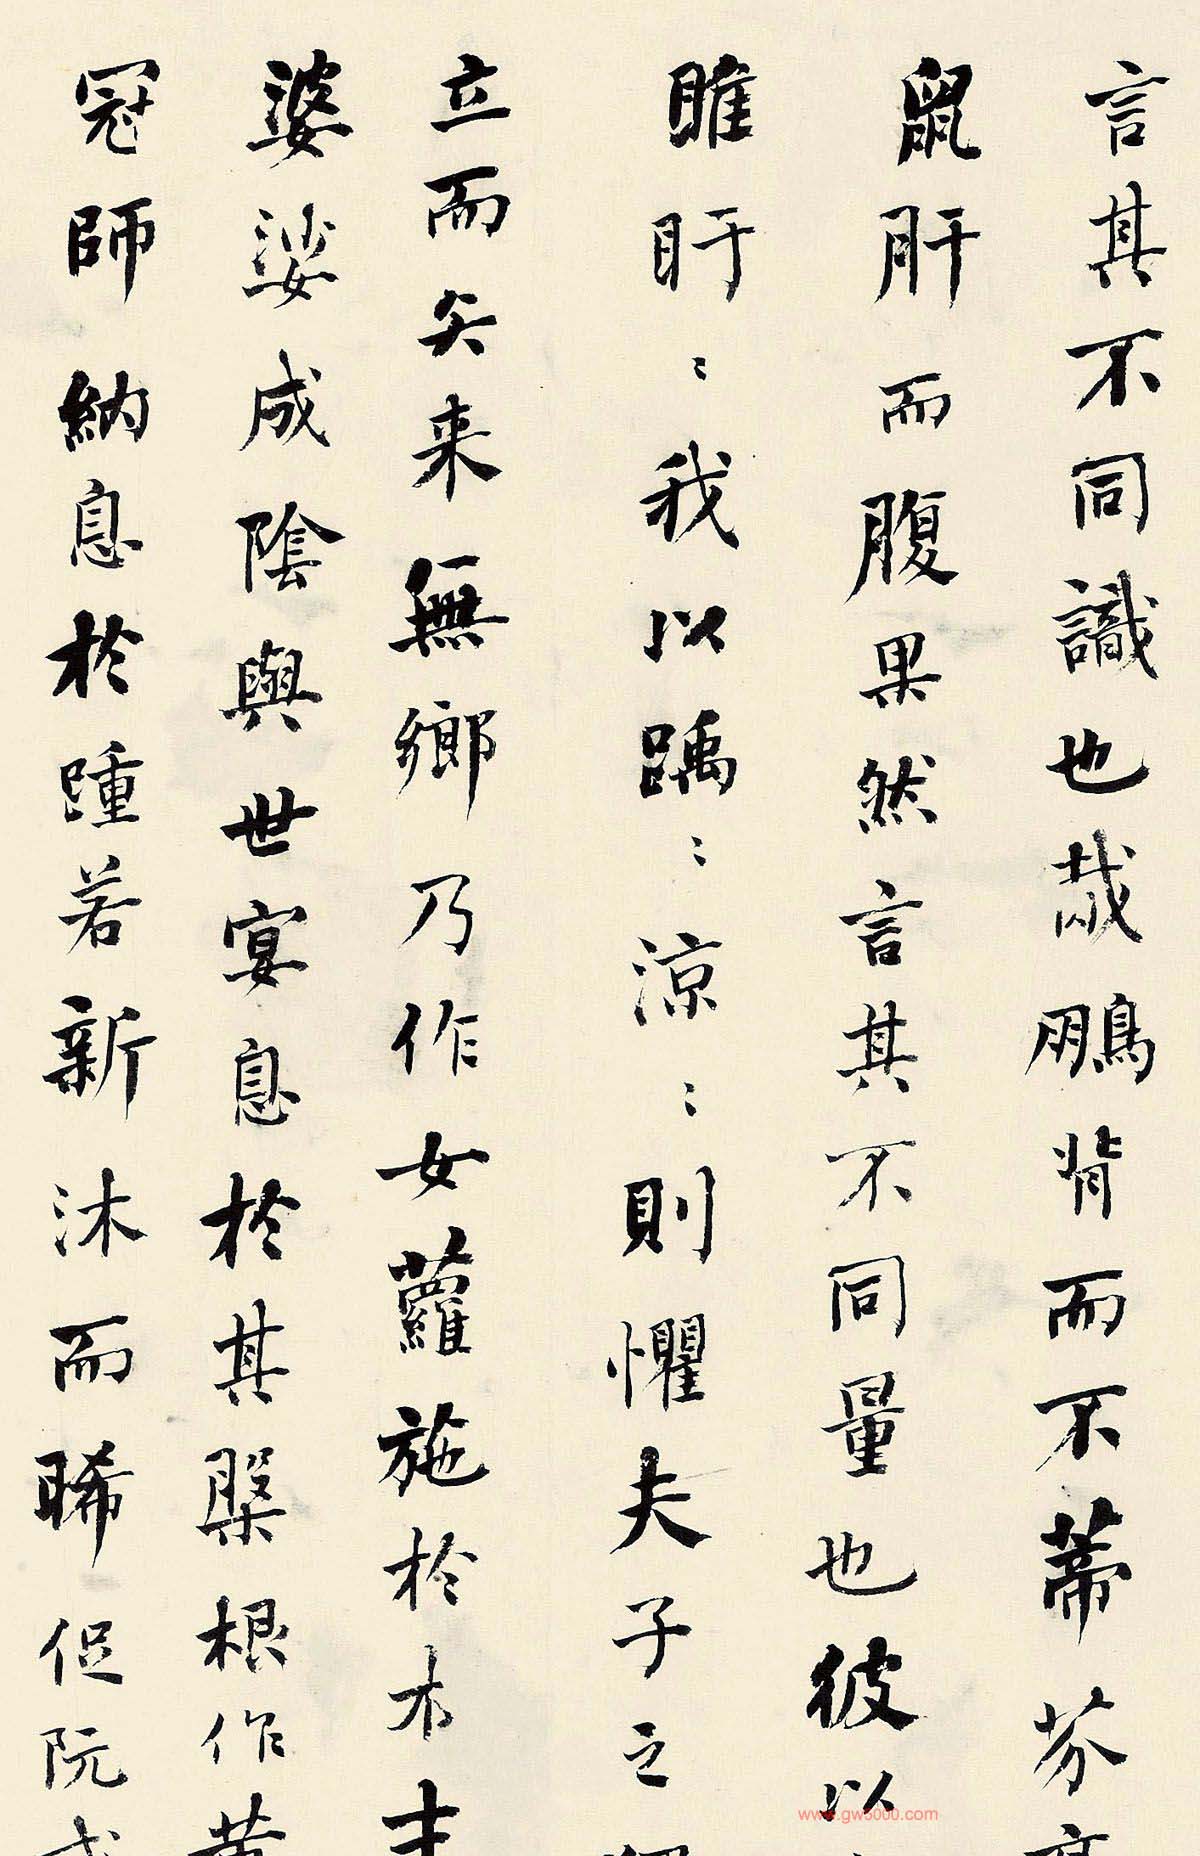 言其不同識也哉鵬背而不蒂芥
鼠肝而腹果然言其不同量也彼以
睢盱〻我以踽〻涼〻則懼夫子之
立而矣来無鄉乃作女蘿施於木
婆娑成陰與世宴息於其槃根作黄
冠師納息於踵若新沐而晞促阮咸
www.gw5000.com